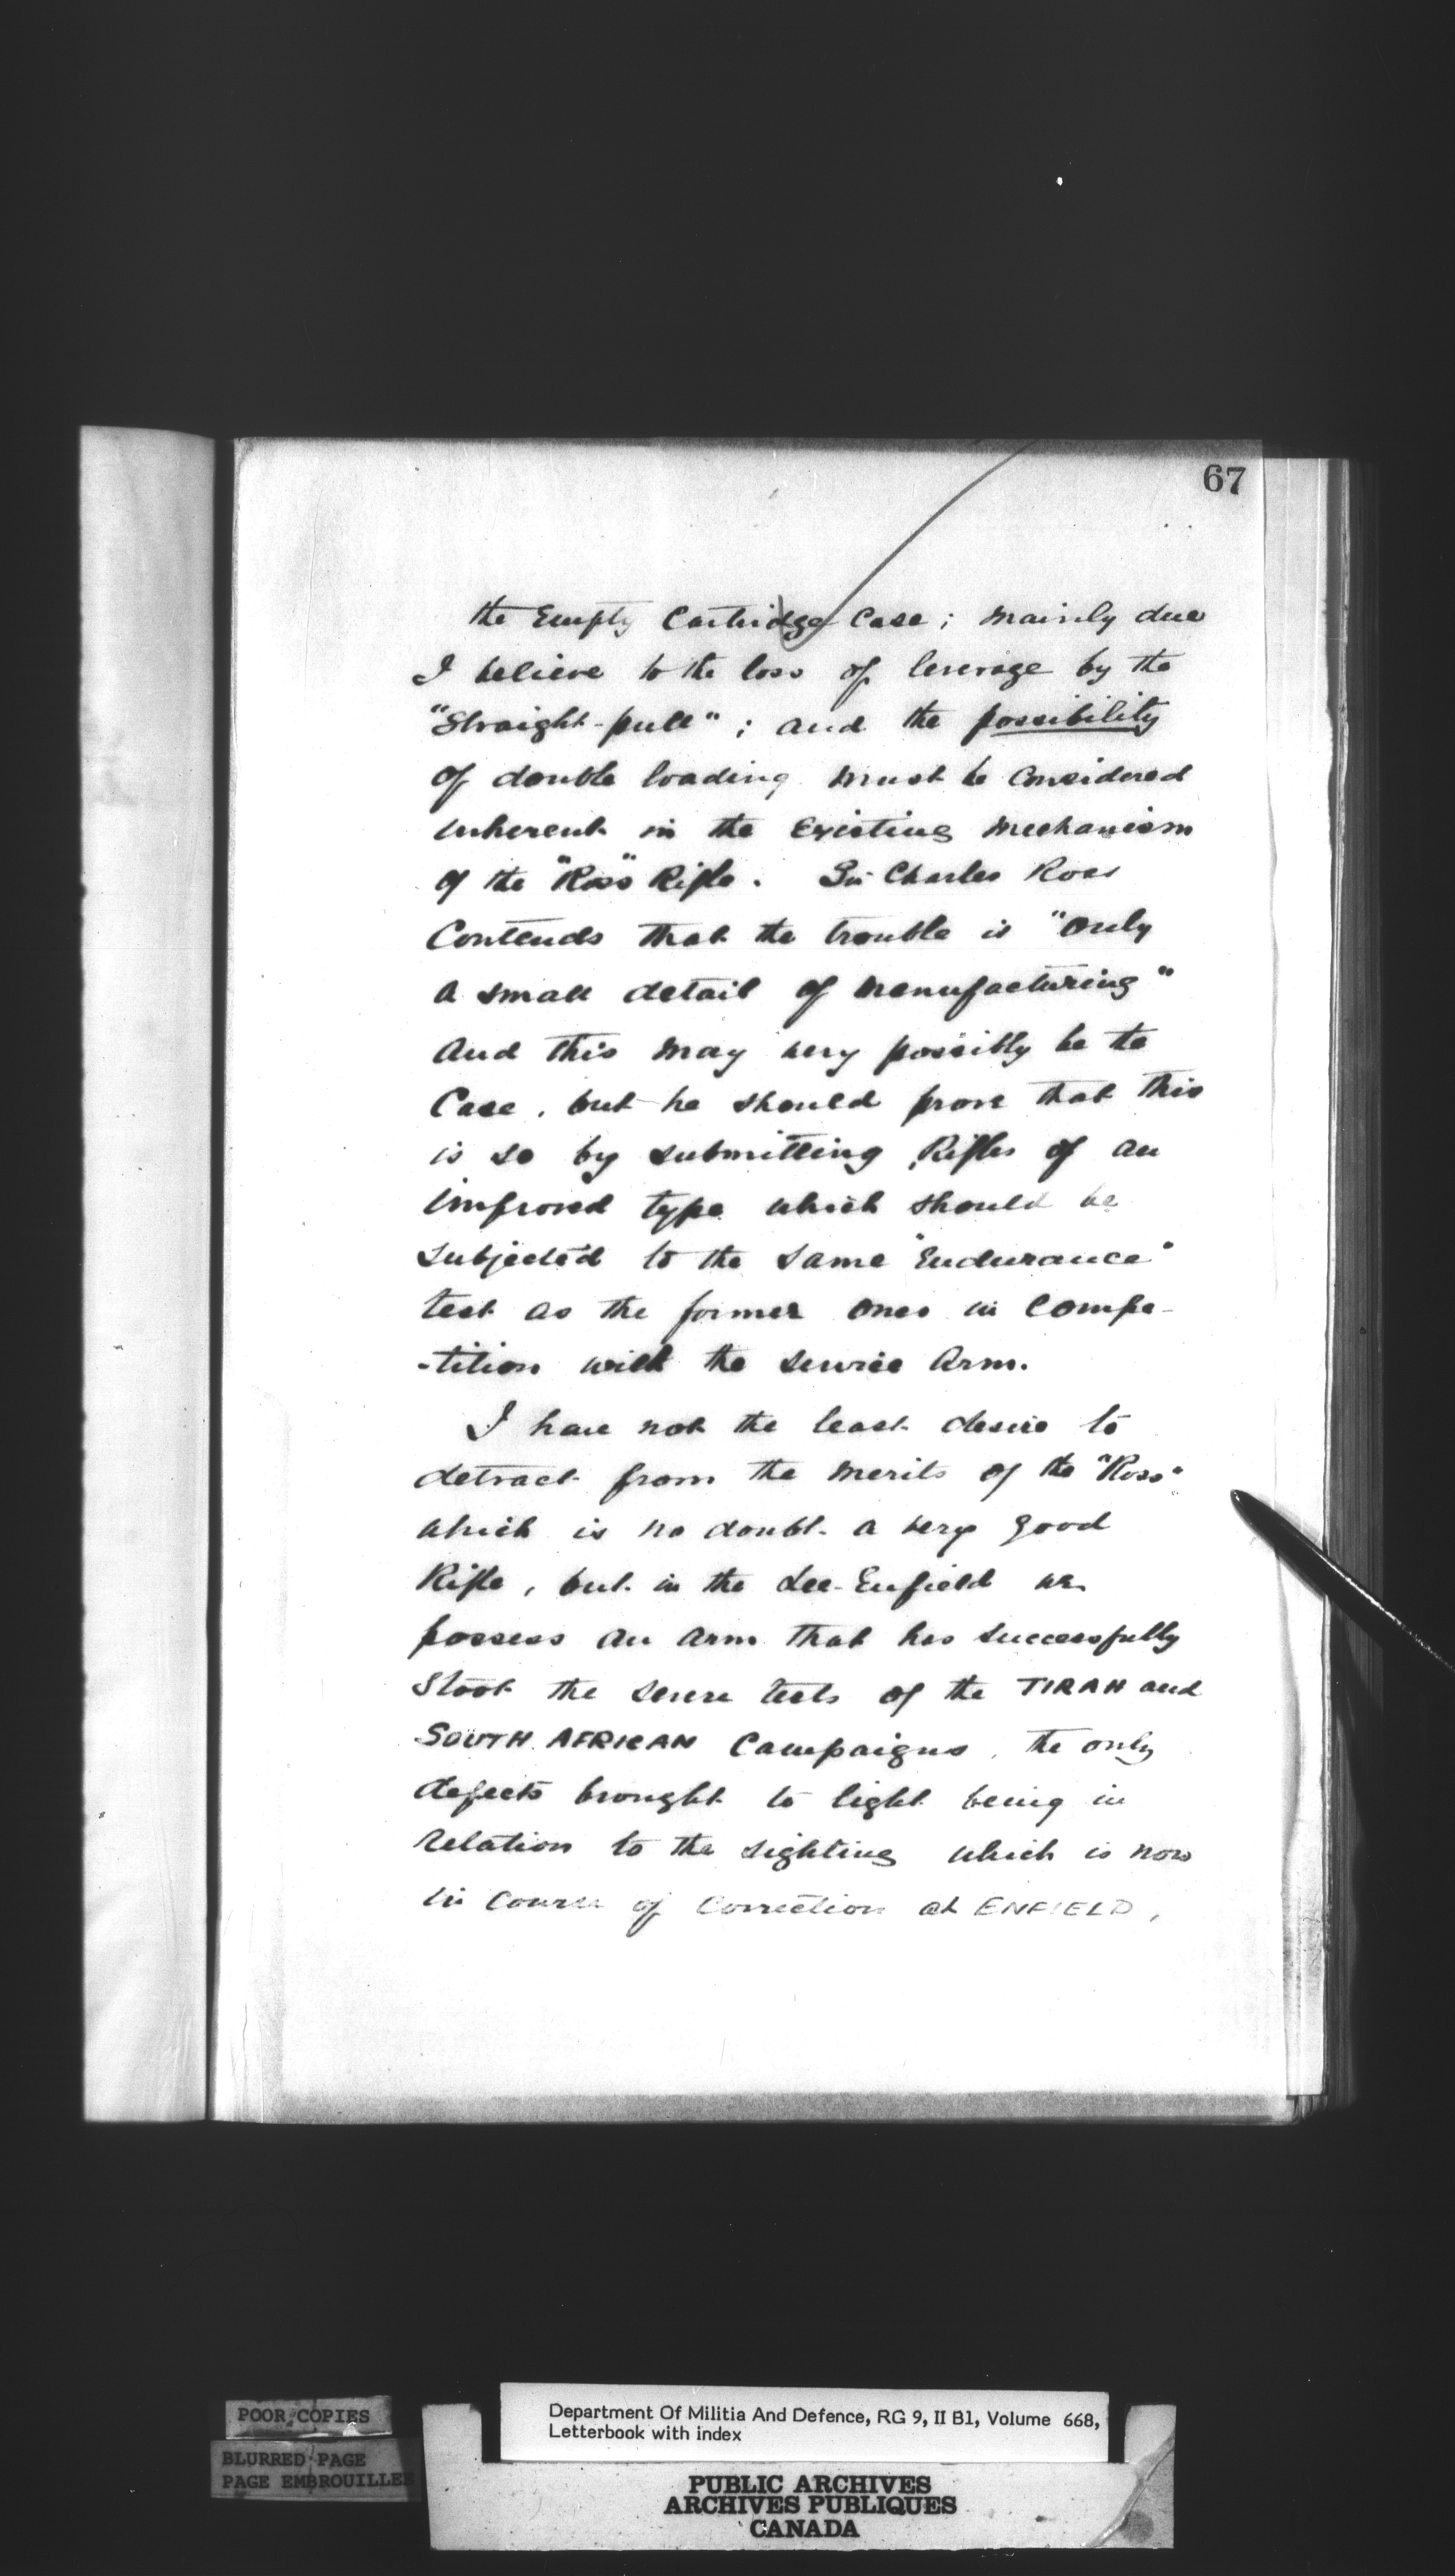 67
the Empty Cartridge Case; mainly due
I believe to the loss of leverage by the
"Straight-pull"; and the possibility
of double loading must be Considered
inherent in the Existing mechanism
of the "Ross" Rifle. Sir Charles Ross
Contends that the trouble is "only
a small detail of manufacturing"
and this may very possibly be the
Case, but he should prove that this
is so by submitting Rifles of an
improved type which should be
subjected to the same "Endurance"
test as the former ones in Compe-
-tition with the service Arm.
I have not the least desire to
detract from the merits of the "Ross"
which is no doubt a very good
Rifle, but in the Lee-Enfield we
possess an arm that has successfully
stood the severe tests of the TIRAH and
SOUTH AFRICAN Campaigns, the only
defects brought to light being in
relation to the sighting which is now
in course of Correction at ENFIELD,
POOR COPIES
BLURRED PAGE
PAGE EMBROUILLEE
Department Of Militia And Defence, RG 9, II B1, Volume 668,
Letterbook with index
PUBLIC ARCHIVES
ARCHIVES PUBLIQUES
CANADA